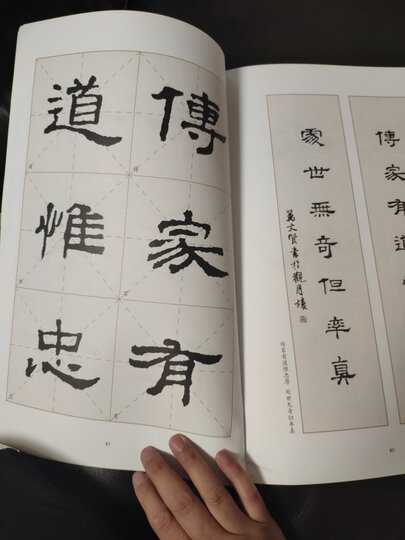 傳家有道
處世無奇但率真
文賢書於觀月樓
传家有道惟忠厚 处世无奇但率真
80
傳家有
道惟忠
81